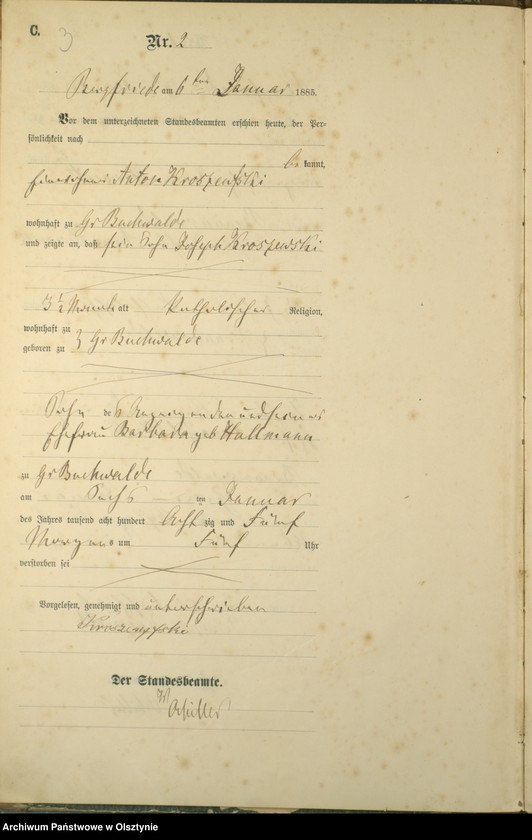 C.
3
Nr. 2
Bergfriede am 6ten Januar 1885.
Vor dem unterzeichneten Standesbeamten erschien heute, der Per-
sönlichkeit nach
be kannt,
Anton Kroszewski
wohnhaft zu Gr Buchwalde
und zeigte an, daß sein Sohn Joseph Kroszewski
3½ Monate alt katholischer Religion,
wohnhaft zu
geboren zu } Gr Buchwalde
Sohn des Anzeigenden und seiner
Ehefrau Barbara geb Hallmann
zu Gr Buchwalde
am Sechs ten Januar
des Jahres tausend acht hundert Acht zig und Fünf
Morgens um Fünf Uhr
verstorben sei
Vorgelesen, genehmigt und unterschrieben
Der Standesbeamte.
Archiwum Państwowe w Olsztynie